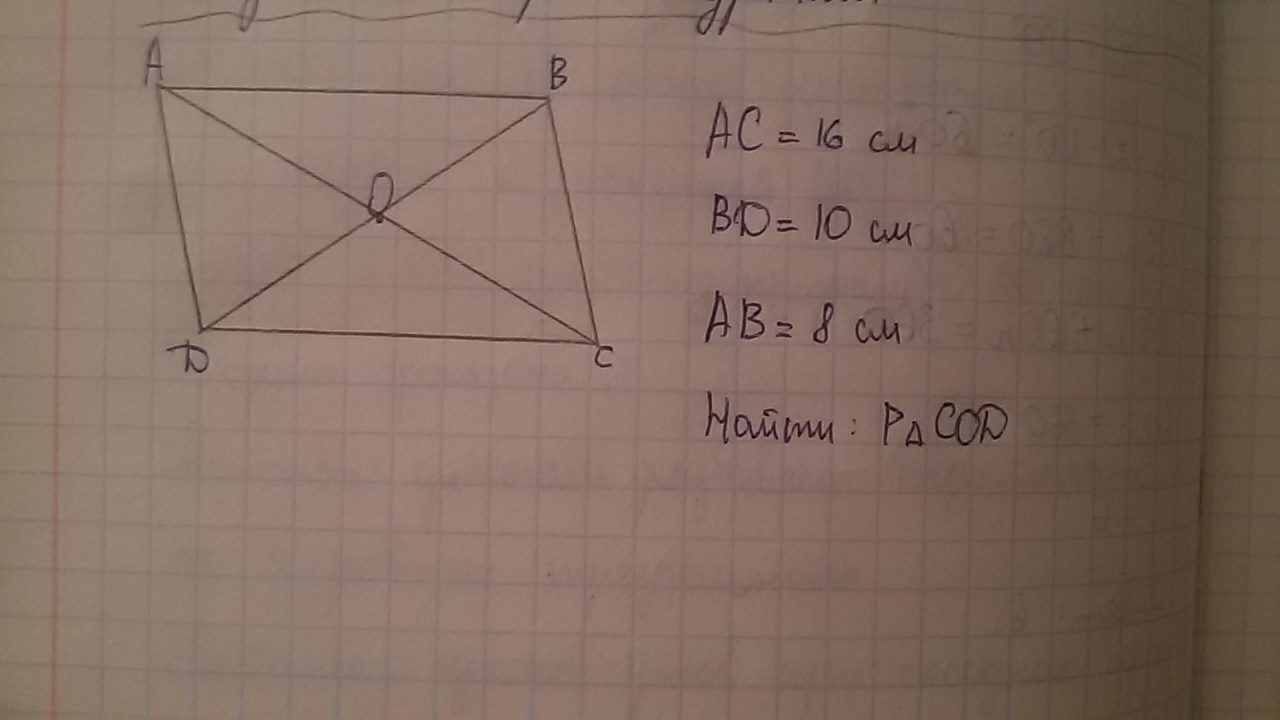 A
B
O
D
C
AC = 16 см
BD = 10 см
AB = 8 см
Найти: P△COD